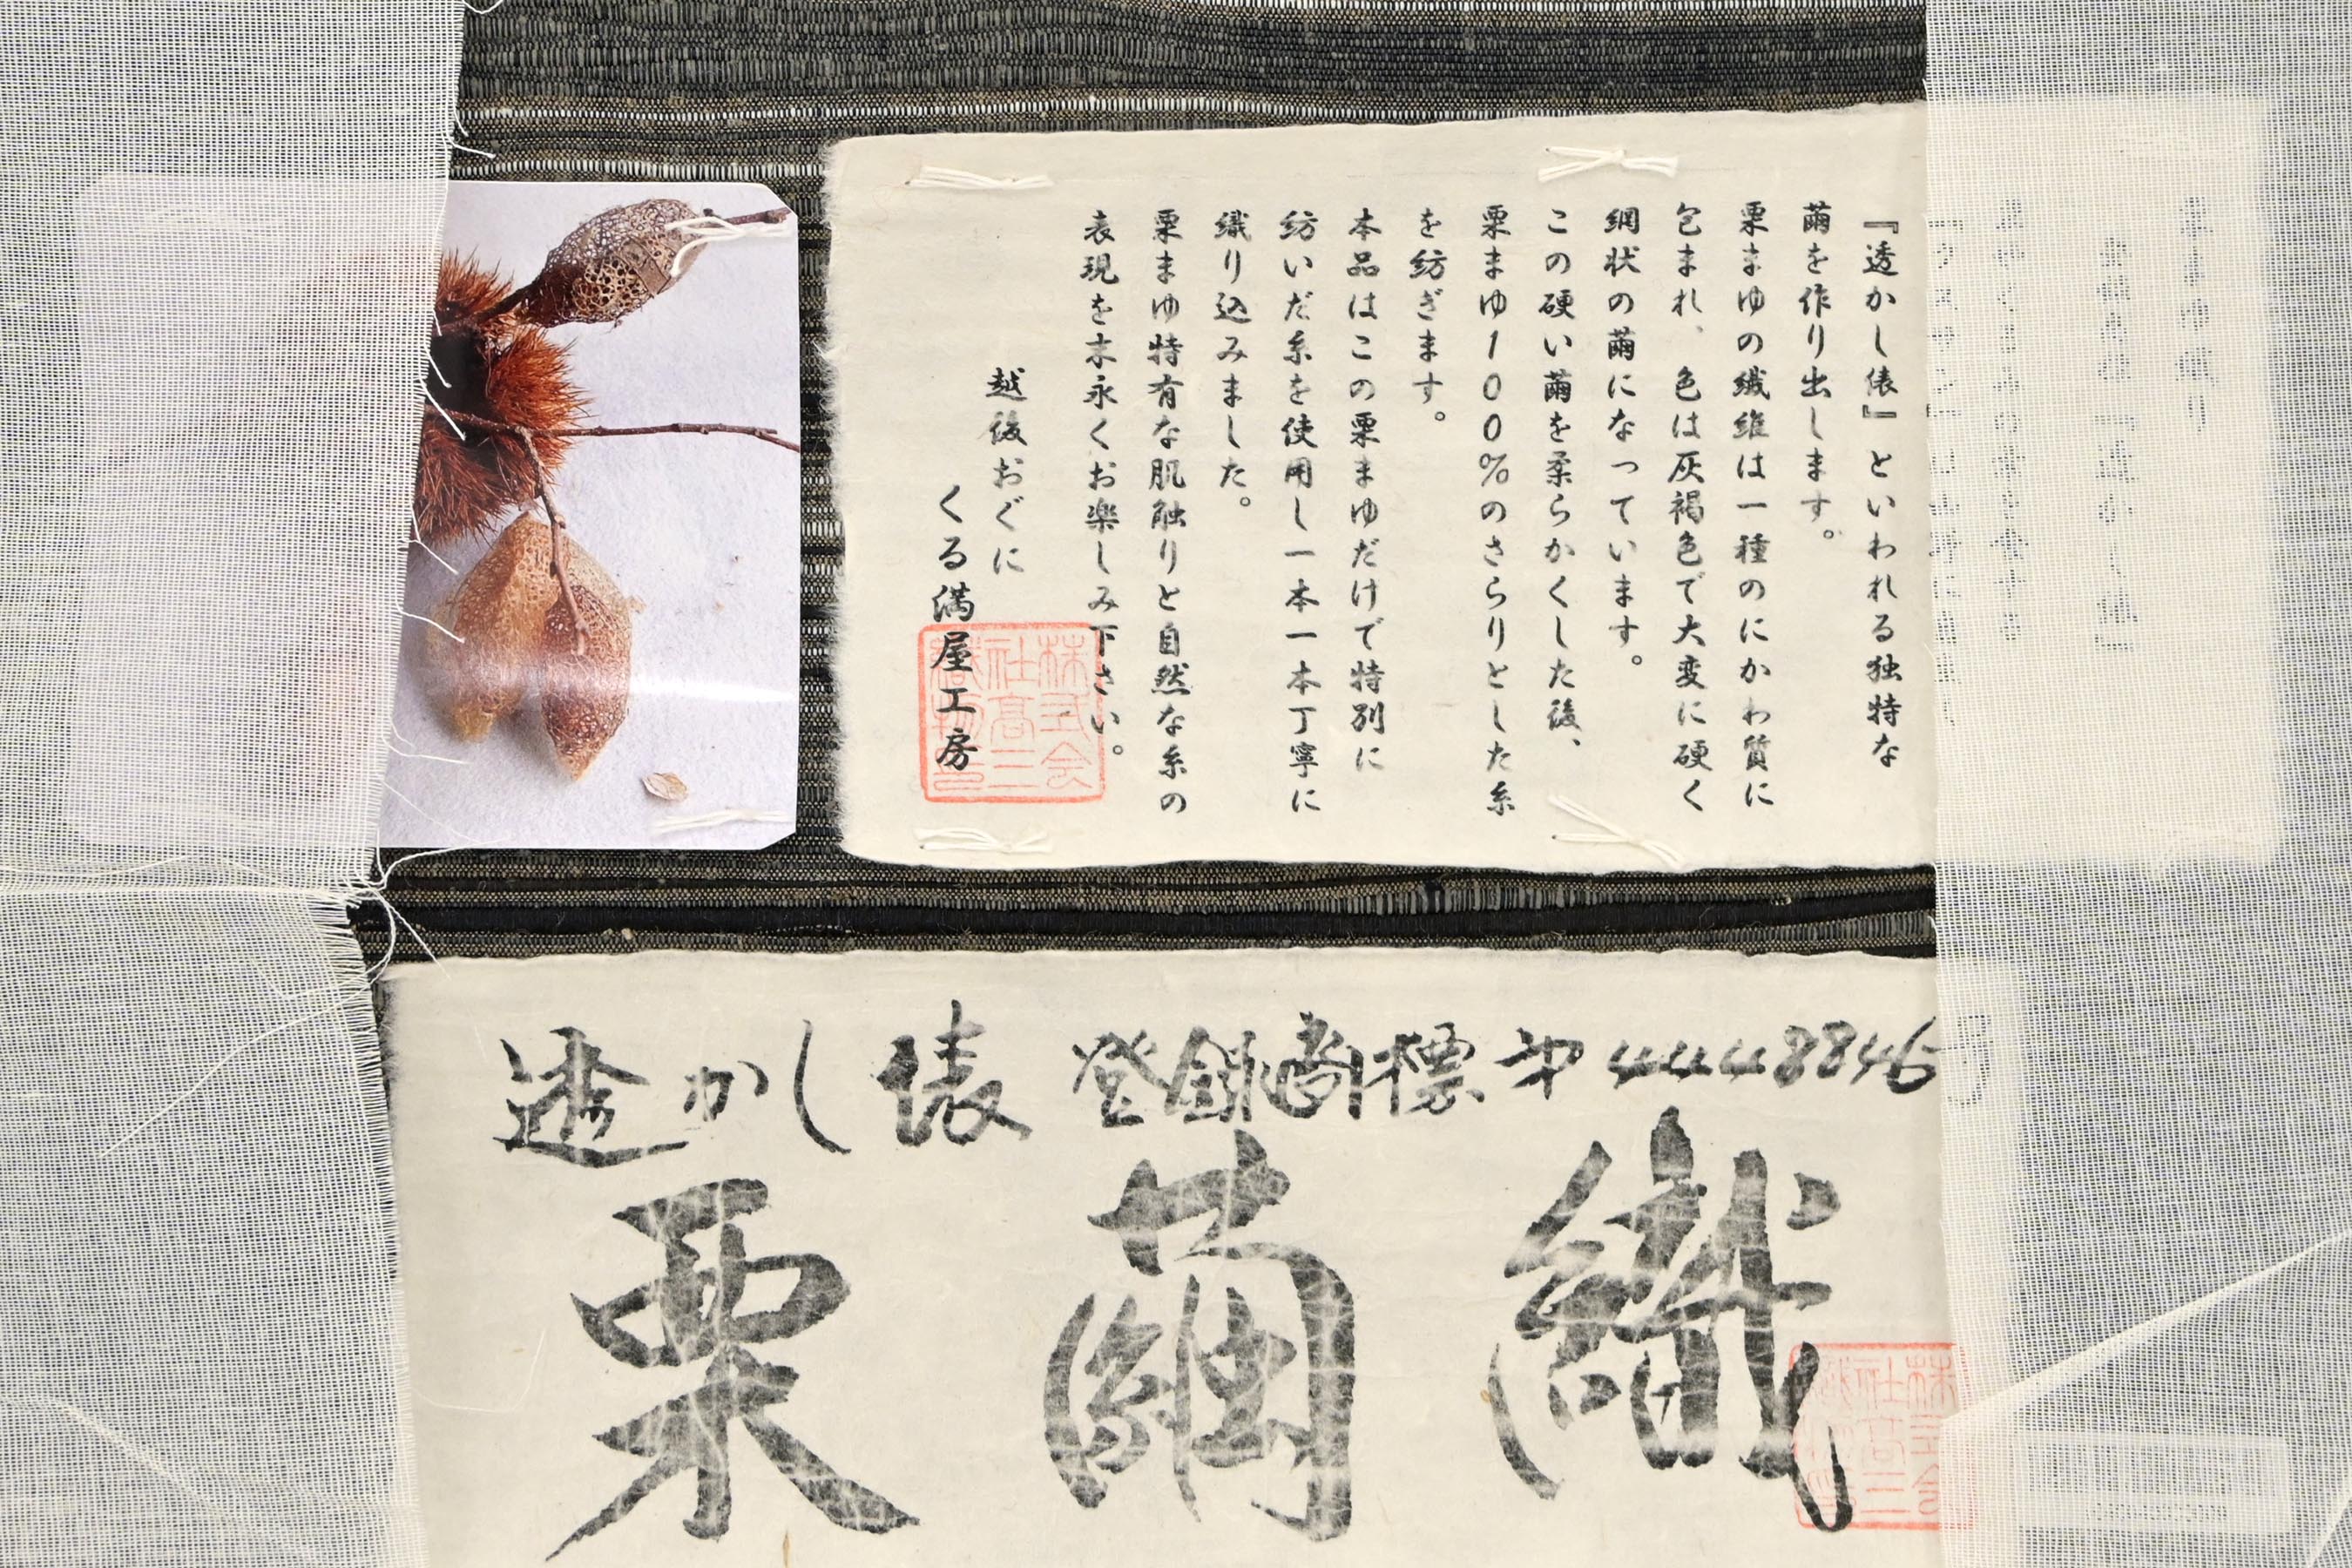 『透かし俵』といわれる独特な
繭を作り出します。
栗まゆの繊維は一種のにかわ質に
包まれ、色は灰褐色で大変に硬く
網状の繭になっています。
この硬い繭を柔らかくした後、
栗まゆ100%のさらりとした糸
を紡ぎます。
本品はこの栗まゆだけで特別に
紡いだ糸を使用し一本一本丁寧に
織り込みました。
栗まゆ特有な肌触りと自然な糸の
表現を末永くお楽しみ下さい。
越後おぐに
くる満屋工房
株式会
社高三
織物
透かし俵 登録商標第4448846
栗繭織
株式会
社高三